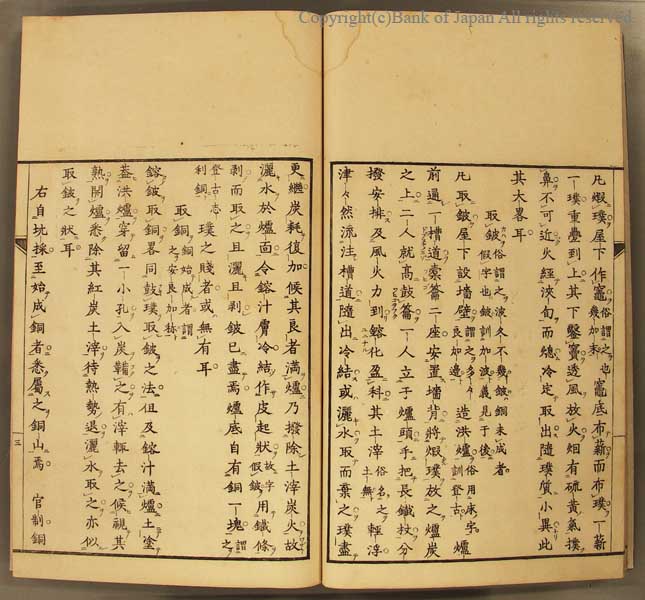 Copyright(c)Bank of Japan All rights reserved.
凡煆璞屋下作竈俗謂之也幾加末竈底布薪而布璞一薪
一璞重疊到上其下鑿竇透風放火烟有硫黃氣撲
鼻不可近火經浹旬而熄冷定取出隨璞質小異此
其大畧耳
取鈹俗謂之
凡取鈹屋下設墻壁造洪爐俗用床字訓登古爐
前通一槽道橐籥二座安置墻背將煆璞放之爐炭
之上二人就高鼓籥一人立于爐頭手把長鐵杖分
撥安排及風火力到鎔化盈科其土滓俗名之輕浮
津々然流注槽道隨出冷結或灑水取而棄之璞盡
更繼炭耗復加候其良者滿爐乃撥除土滓炭火故
灑水於爐面令鎔汁膚冷結作皮起狀用鐵條
剥而取之且灑且剥鈹已盡焉爐底自有銅一塊謂之
登古志利銅璞之賤者或無有耳
取銅
鎔鈹取銅畧同鼓璞取鈹之法但及鎔汁滿爐土塗
蓋洪爐穿留一小孔入炭鞴之有滓輒去之候視其
熟開爐悉除其紅炭土滓待熱勢退灑水取之亦似
取鈹之狀耳
右自坑採至始成銅者悉屬之銅山焉官制銅
三